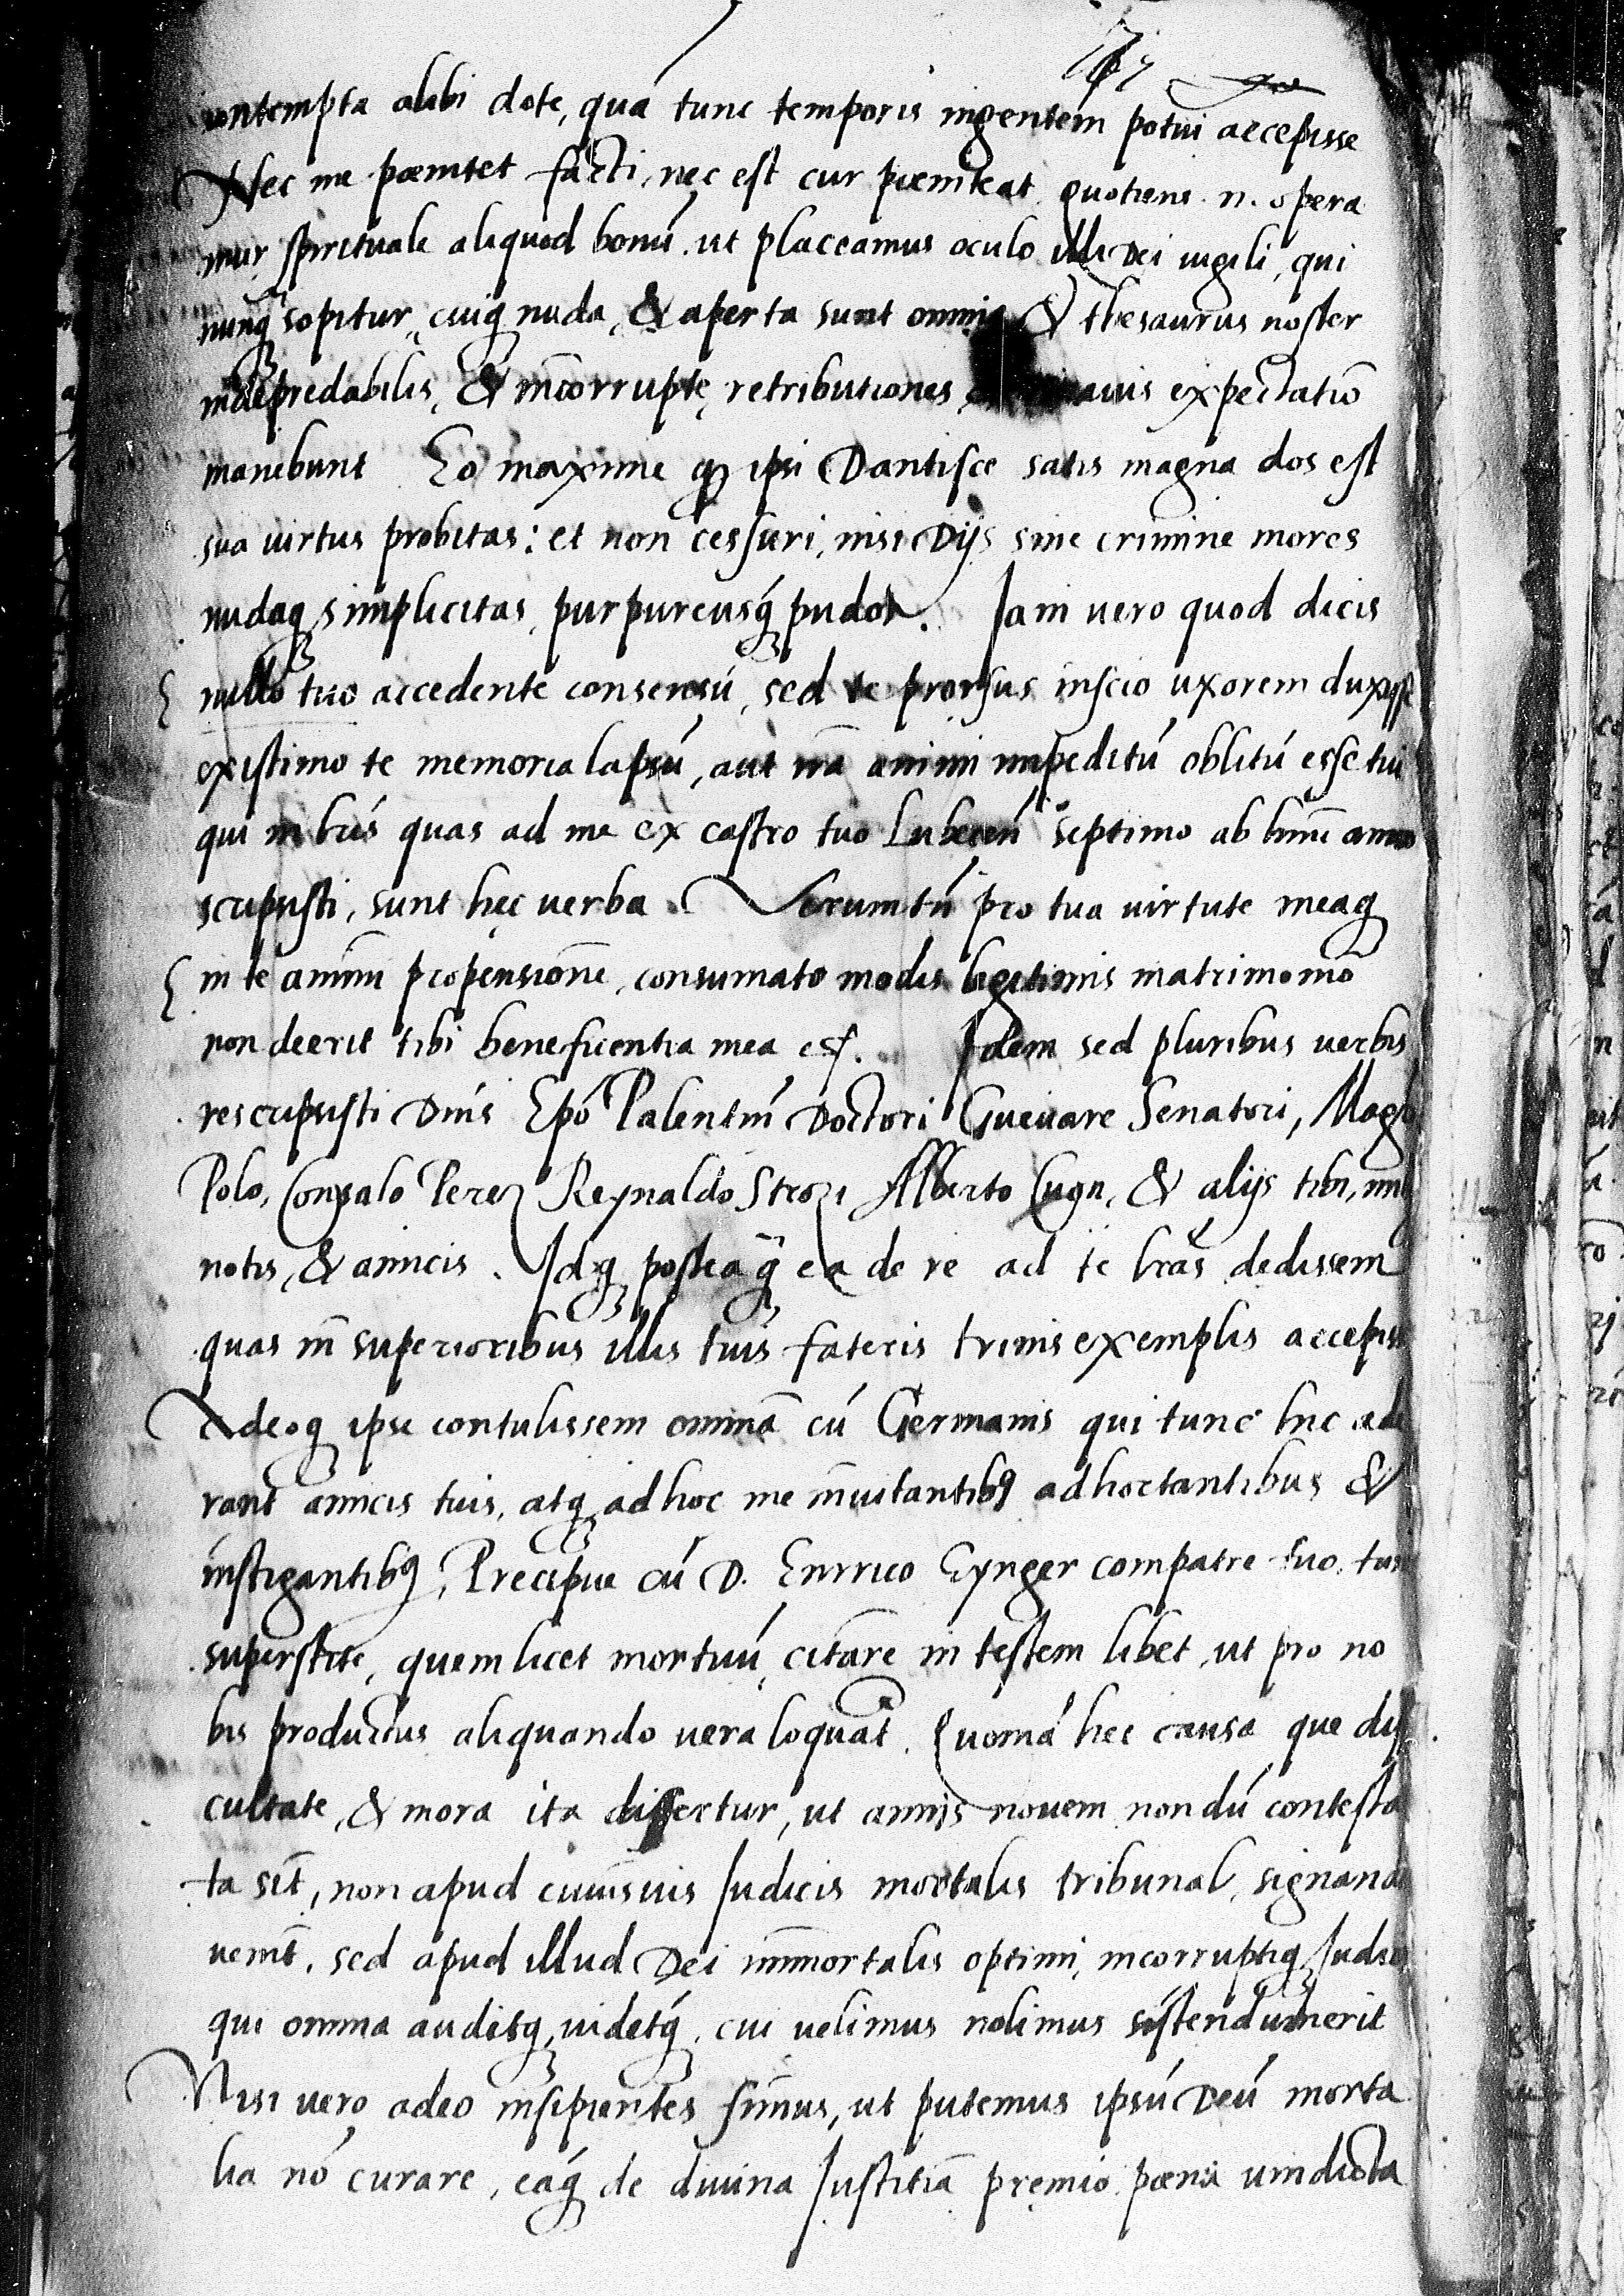 contempta alibi dote, quā tunc temporis ingentem potui accepisse
Nec me pœnitet facti, nec est cur pœniteat. Quotiens .n. opera
mur spirituale aliquod bonū. ut placeamus oculo illi Dei uigili, qui
nunq̄ sopitur, cuiq; nuda, & aperta sunt omnia & thesaurus noster
indepredabilis, & incorruptę retributiones expectatiō
manebunt Eo maxime q ipsi Dantisce satis magna dos est
sua uirtus probitas: et non cessuri, nisi Dijs sine crimine mores
nudaq; simplicitas, purpureusq́; pudor. Jam uero quod dicis
nullo tuo accedente consensu, sed te prorsus inscio uxorem duxisse
existimo te memoria lapsū, aut animi impeditū oblitū esse tui
qui in lr̄is quas ad me ex castro tuo septimo ab hinc anno
scripsisti, sunt hęc uerba. Verumtn̄ pro tua uirtute meaq;
in te animi propensione, consumato modis legitimis matrimonio
non deerit tibi beneficentia mea Idem sed pluribus uerbis
rescripsisti Dnis Epō Palentin̄ Doctori Gueuare Senatori, Magro
Polo, Gonsalo Perez Reynaldo Strozi Alberto Cugn, & alijs tibi,
notis, & amicis. Idq; posteaq̄; ea de re ad te lr̄as dedissem
quas in superioribus illis tuis fateris trinis exemplis accepisse
Adeoq; ipse contulissem omnia cū Germanis qui tunc hic ade
rant amicis tuis, atq; ad hoc me inuitantibꝰ adhortantibus &
instigantibꝰ, Precipue cū D. Enrrico Eynger compatre tuo, tunc
superstite, quem licet mortuū, citare in testem libet, ut pro no
bis productus aliquando uera loquat̄. Quoniā hec causa que dif
cultate, & mora ita differtur, ut annis nouem nondū contesta
ta sit, non apud cuiusuis Judicis mortalis tribunal, signanda
uenit, sed apud illud Dei immortalis optimi, incorruptiq; Judicis
qui omnia auditq;, uidetq́;, cui uelimus nolimus sistendum erit
Nisi uero adeo insipientes simus, ut putemus ipsū Deū morta
lia nō curare, eaq́; de diuina Justitiā pręmio pœna uindicta